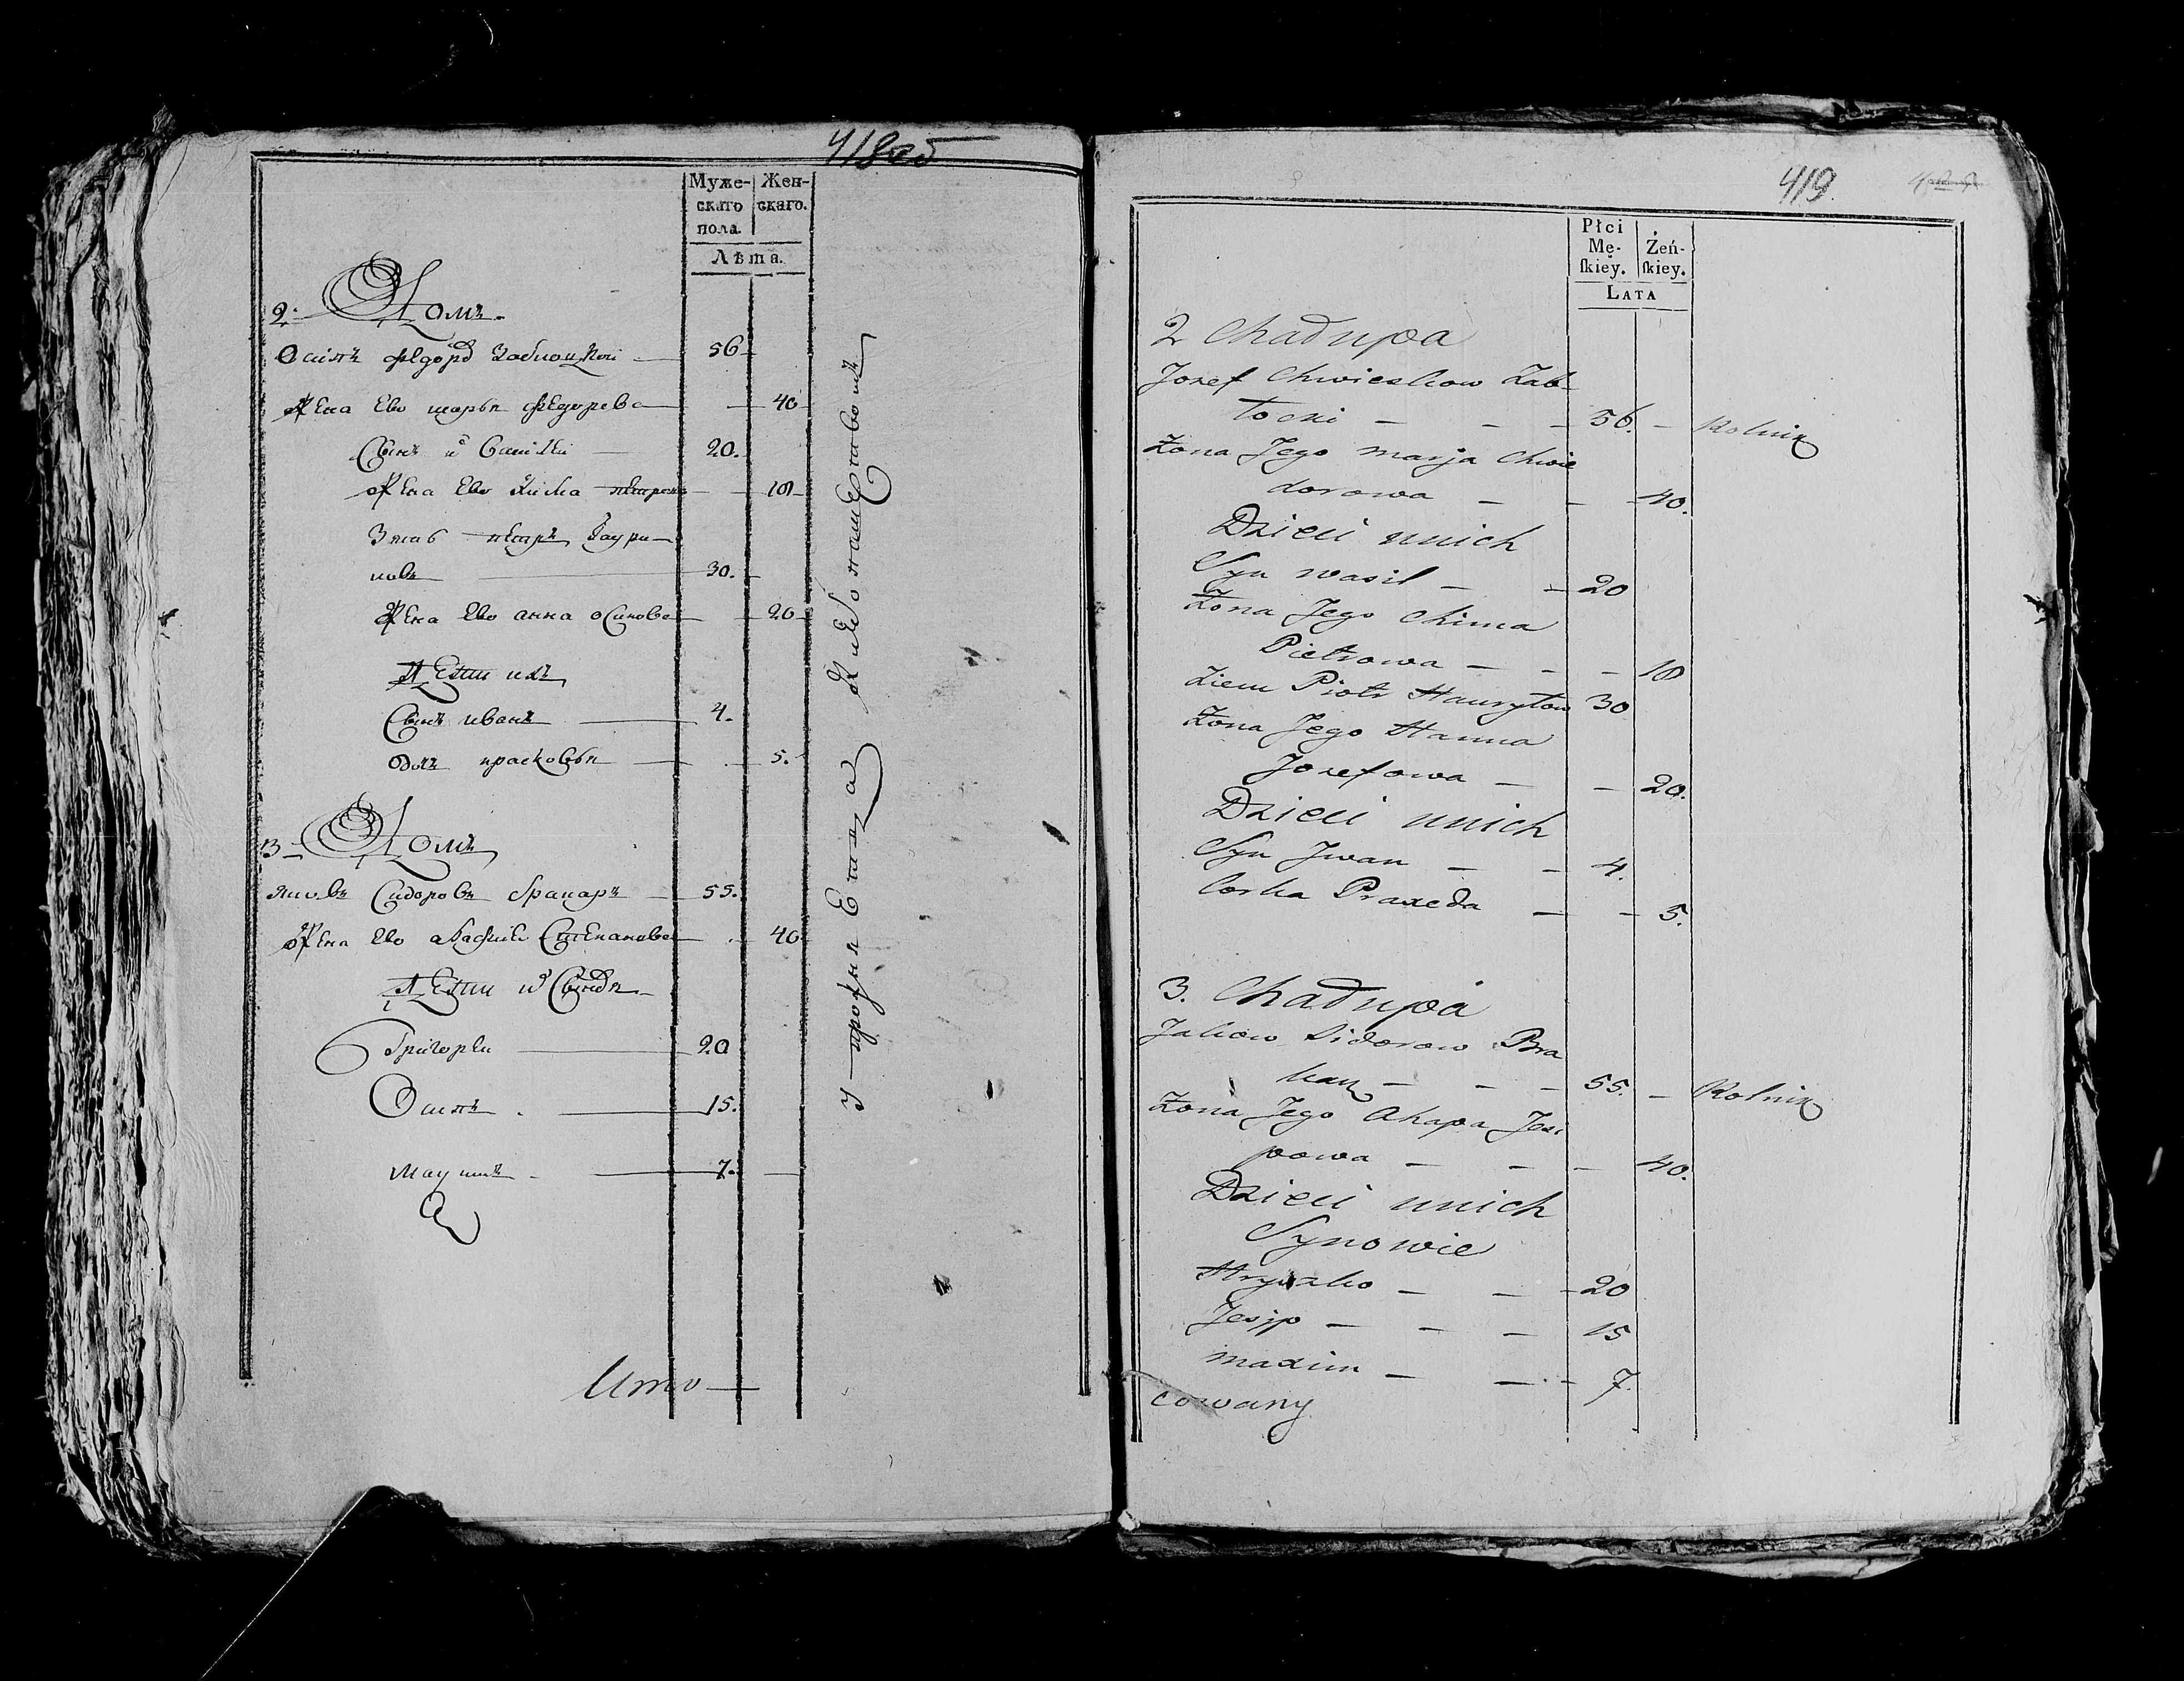 418 об
Муже-
скаго
пола
Жен-
скаго.
Лѣта.
2. Домъ
Осипъ Федоровъ Заблоцкой 56
Жена Ево марья Федорова 40
Сынъ Василей 20.
Жена Ево Хима петрова 18
Зять петръ Гаури-
ловъ 30.
Жена Ево анна осипова 20
Дети ихъ
Сынъ иванъ 4.
Дочь прасковья 5.
3 Домъ
Яковъ Сидоровъ 55.
Жена Ево агафия Степанова 40
Дети Сыновья
Григорей 20
Осипъ 15.
7.
Итого
419
Płci
Mę-
ſkiey.
Żeń-
ſkiey.
LATA
2 Chałupa
Jozef Chwiedkow Zab
łocki 56. Rolnik
Zona Jego Marja Chwie
dorowa 40.
Dzieci unich
Syn wasil 20
Zona Jego Chima
Pietrowa 18
Ziem Piotr Hauryłow 30
Zona Jego Hanna
Jozefowa 20.
Dzieci unich
Syn Jwan 4.
Corka Praxeda 5.
3. Chałupa
Jakow Sidorow 55. Rolnik
Zona Jego Ahapa Jesi
powa 40.
Dzieci unich
Synowie
Hryszko 20
Jesip 15
maxim 7.
cowany